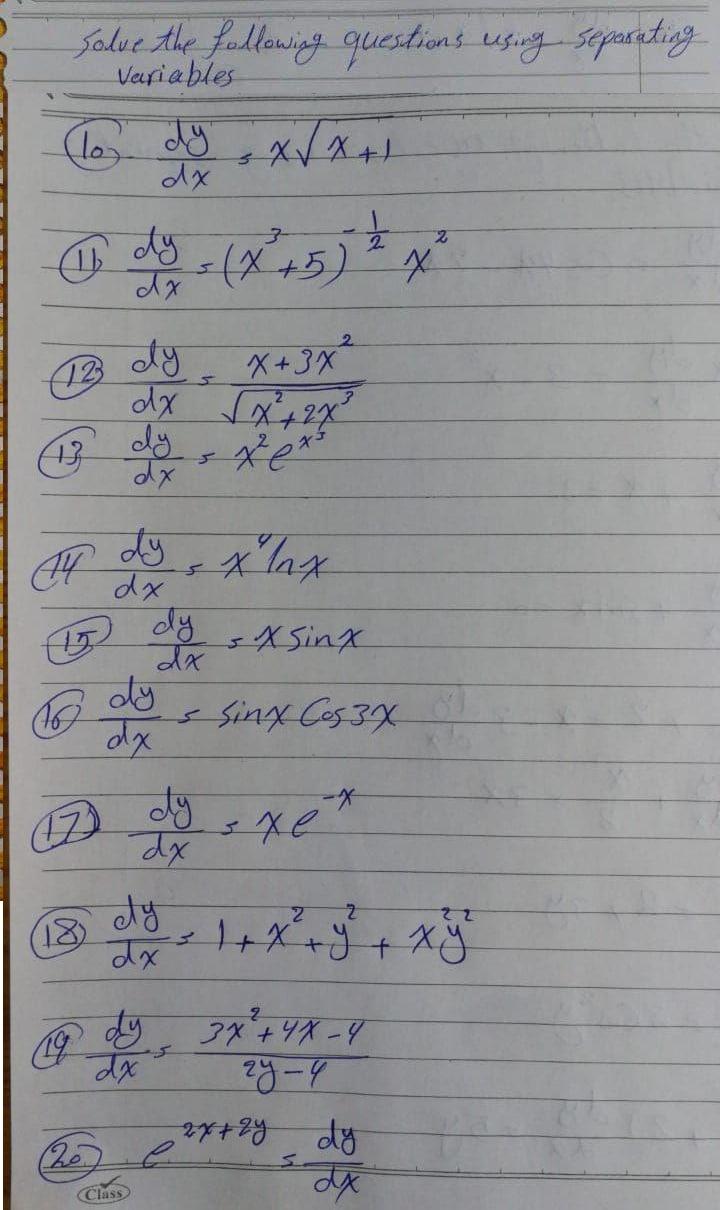 Solve the following questions using separating
variables
10 dy/dx = x√(x+1)
11 dy/dx = (x³+5)^(-1/2) x²
12 dy/dx = (x+3x²)/√(x²+2x³)
13 dy/dx = x² e^(x³)
14 dy/dx = x⁴ ln x
15 dy/dx = x sin x
16 dy/dx = sin x Cos 3x
17 dy/dx = x e^(-x)
18 dy/dx = 1 + x² + y² + x² y²
19 dy/dx = (3x²+4x-4)/(2y-4)
20 e^(2x+2y) = dy/dx
Class